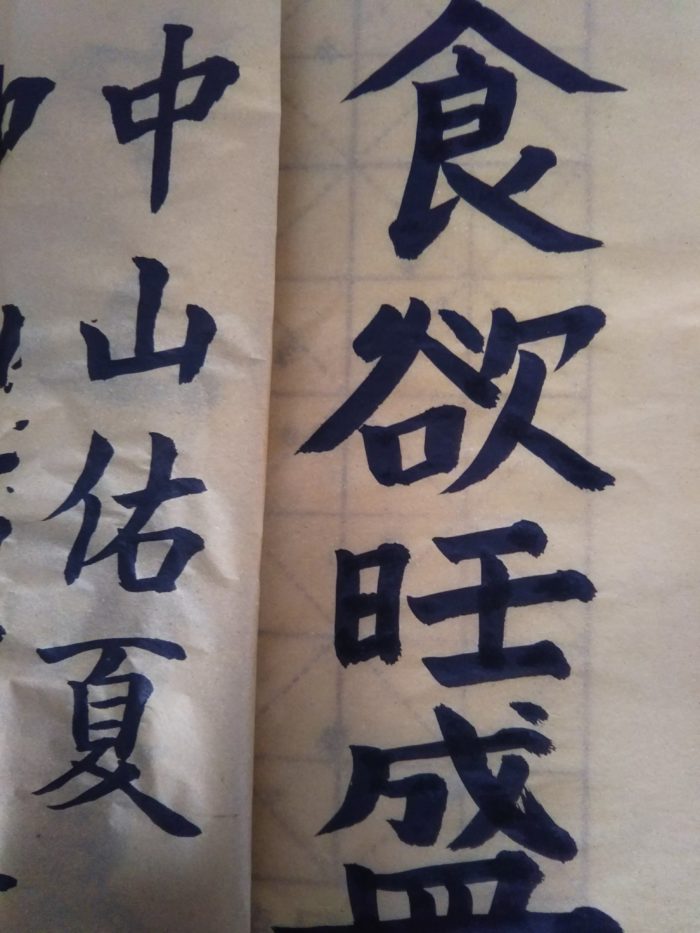 食欲旺盛
中山佑夏